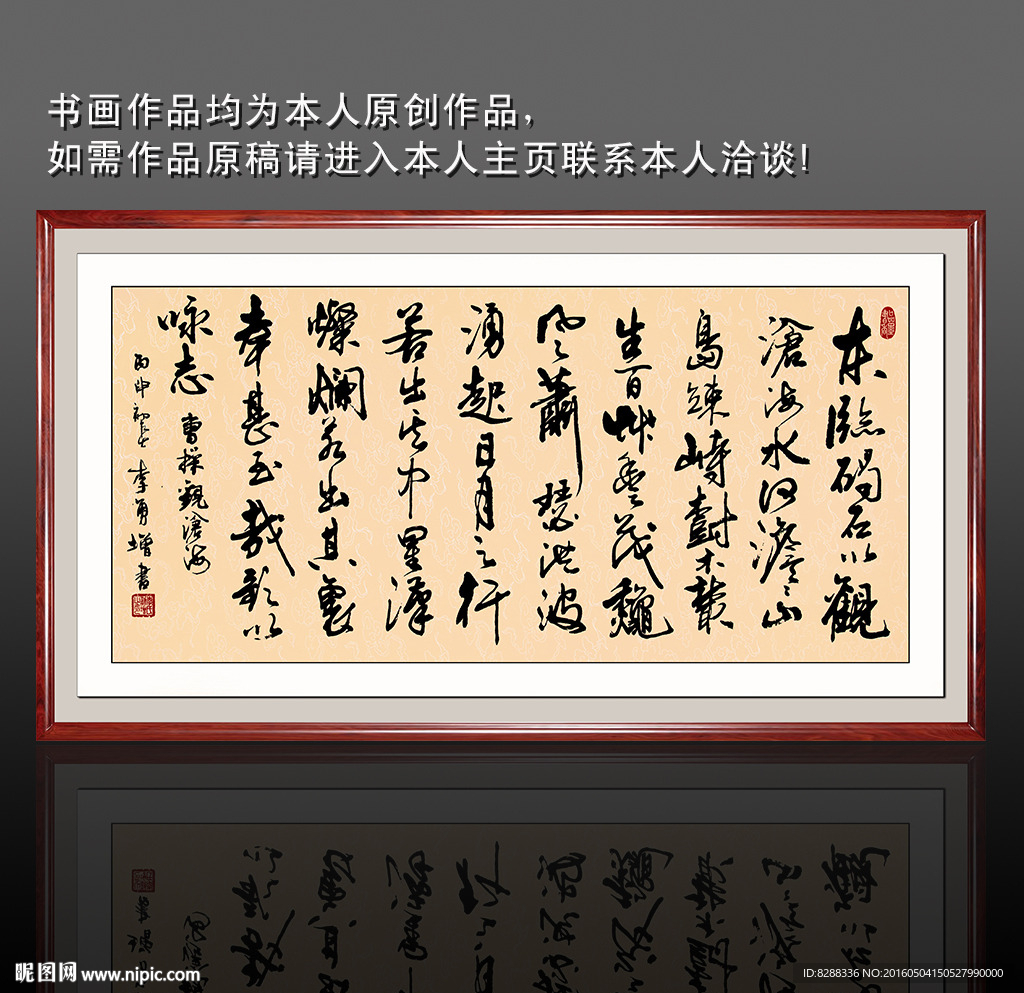 书画作品均为本人原创作品，
如需作品原稿请进入本人主页联系本人洽谈！
东臨碣石以觀
滄海水何澹々山
島竦峙樹木叢
生百艸豐茂龝
風蕭瑟洪波
湧起日月之行
若出其中星漢
燦爛若出其裏
幸甚至哉歌以
咏志
曹操觀滄海
丙申初夏 李勇增書
昵图网 www.nipic.com
ID:8288336 NO:20160504150527990000